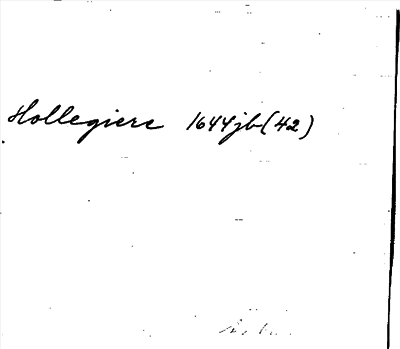 Hollegiere 1644jb(42)